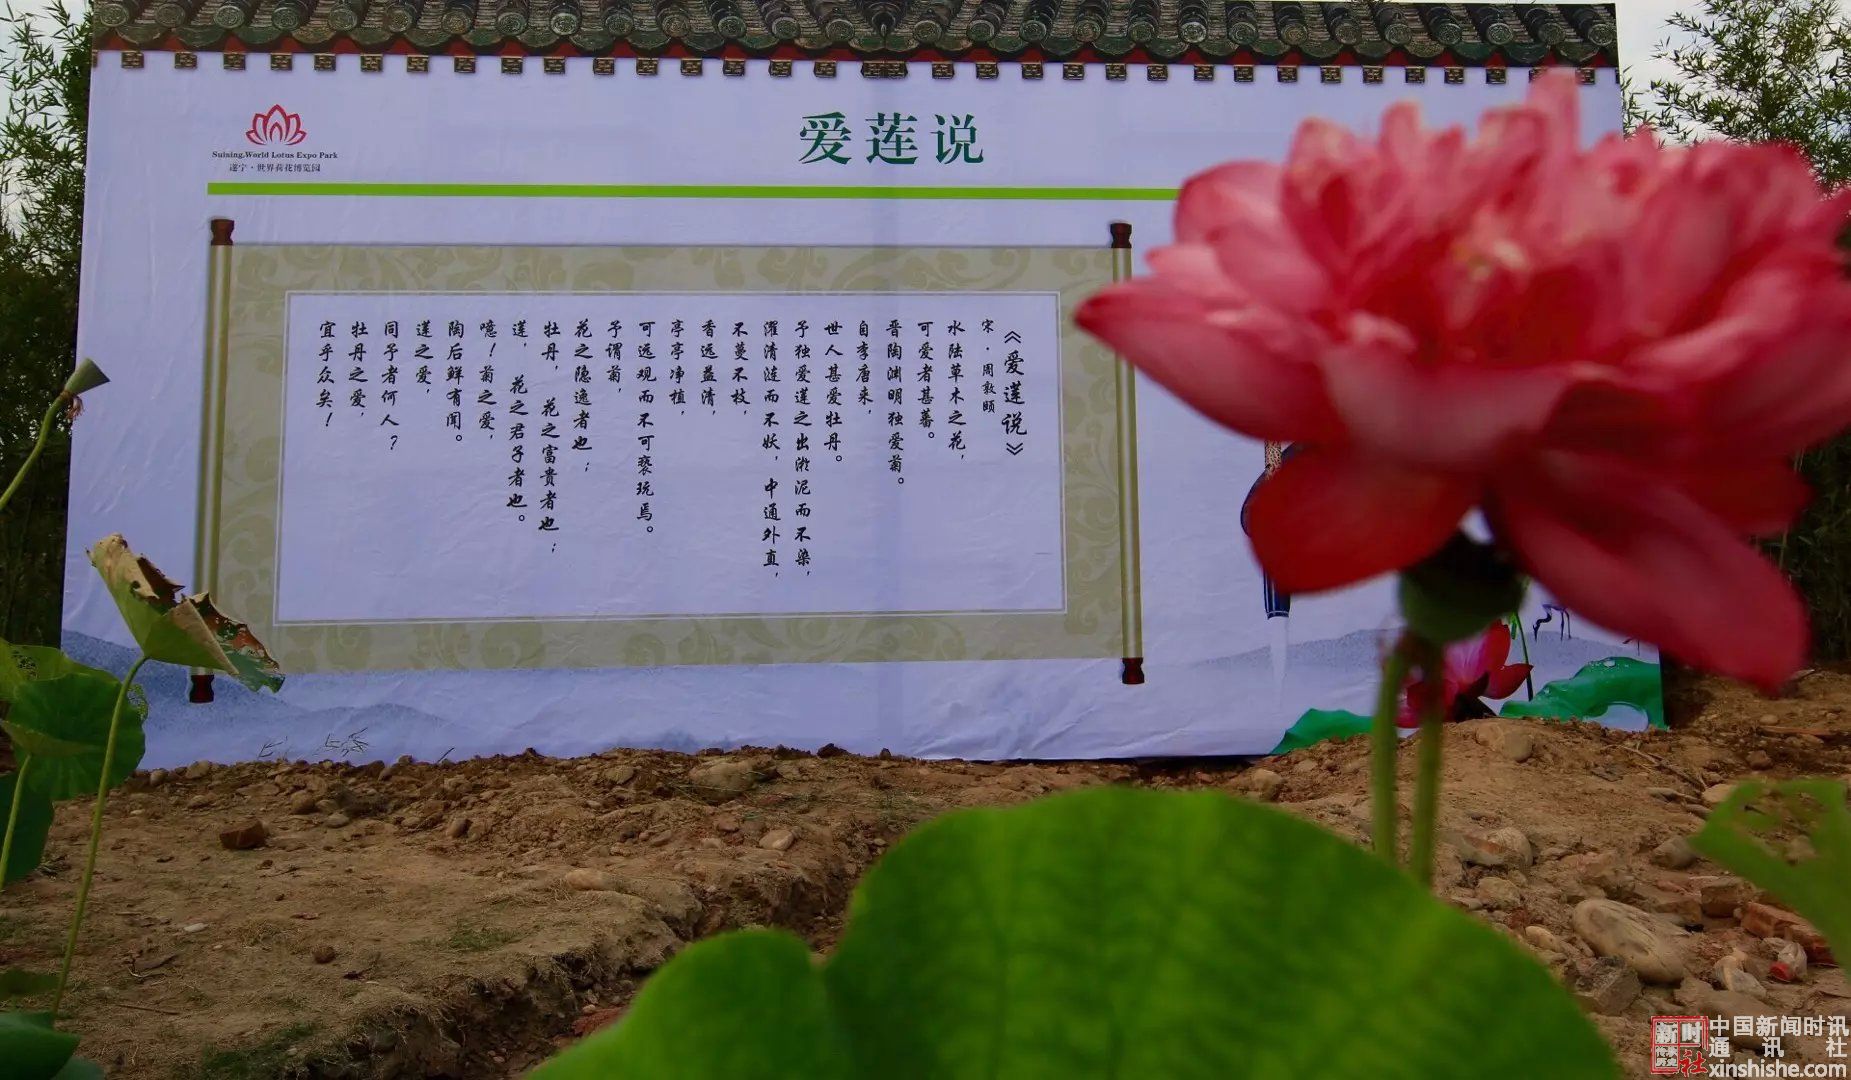 爱莲说
Suining.World Lotus Expo Park
遂宁·世界荷花博览园
《爱莲说》
宋·周敦颐
水陆草木之花，
可爱者甚蕃。
晋陶渊明独爱菊。
自李唐来，
世人甚爱牡丹。
予独爱莲之出淤泥而不染，
濯清涟而不妖，中通外直，
不蔓不枝，
香远益清，
亭亭净植，
可远观而不可亵玩焉。
予谓菊，
花之隐逸者也；
牡丹，花之富贵者也；
莲，花之君子者也。
噫！菊之爱，
陶后鲜有闻。
莲之爱，
同予者何人？
牡丹之爱，
宜乎众矣！
新时社
中国新闻时讯
通讯社
xinshishe.com